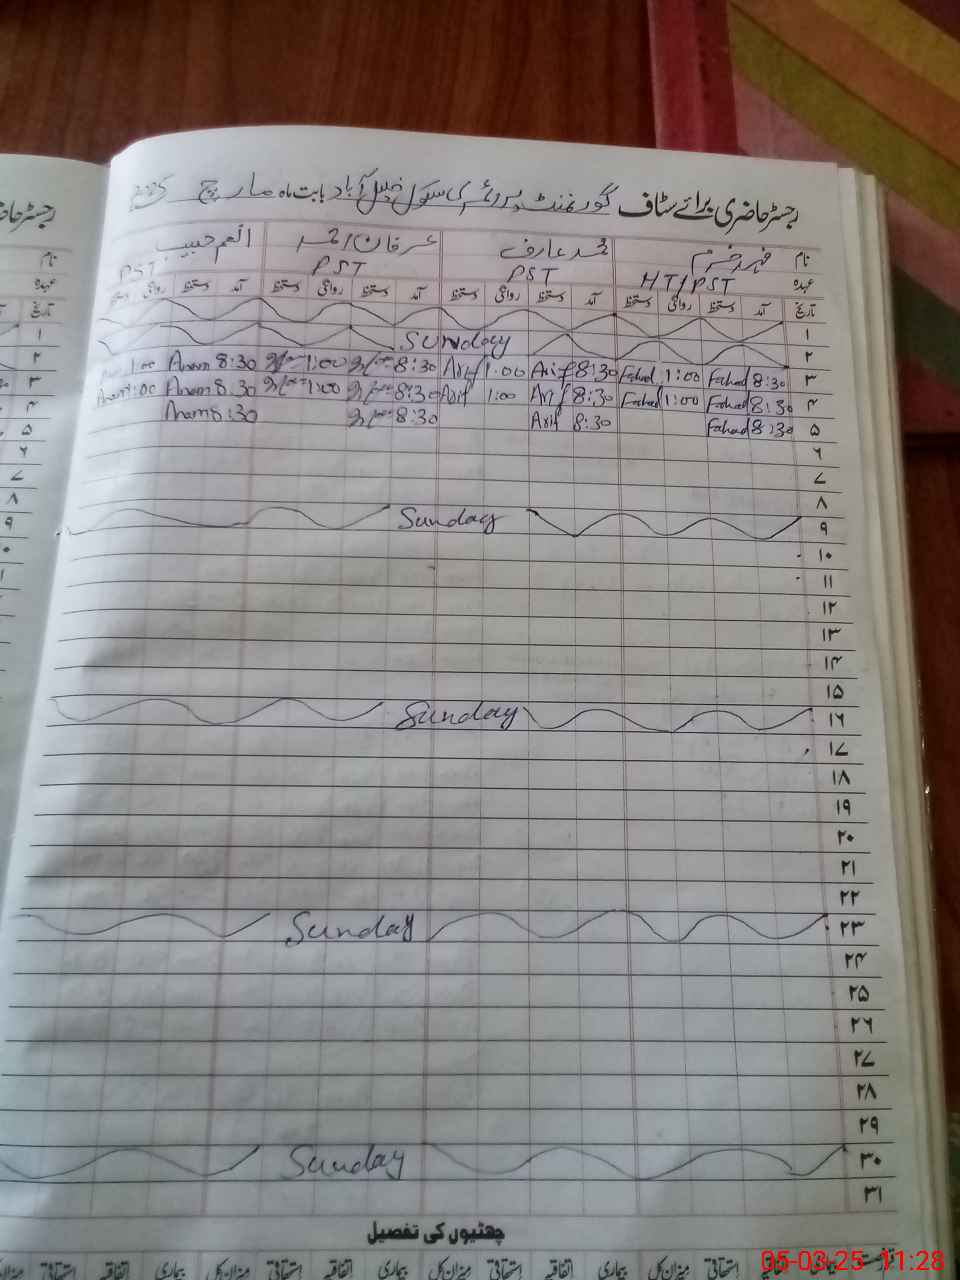 رجسٹر حاضری برائے سٹاف گورنمنٹ پرائمری سکول آباد بابت ماہ مارچ 2025
نام محمد عارف عرفان احمد انعم حبیب
عہدہ HT/PST PST PST PST
تاریخ آمد دستخط روانگی دستخط آمد دستخط روانگی دستخط آمد دستخط روانگی دستخط آمد دستخط روانگی دستخط
۱
۲ Sunday
۳ 8:30 Fahad 1:00 Fahad 8:30 Arif 1:00 Arif 8:30 1:00 8:30 Anam 1:00
۴ 8:30 Fahad 1:00 Fahad 8:30 Arif 1:00 Arif 8:30 1:00 8:30 Anam 1:00 Anam
۵ 8:30 Fahad 8:30 Arif 8:30 8:30 Anam
۶
۷
۸
۹ Sunday
۱۰
۱۱
۱۲
۱۳
۱۴
۱۵
۱۶ Sunday
۱۷
۱۸
۱۹
۲۰
۲۱
۲۲
۲۳ Sunday
۲۴
۲۵
۲۶
۲۷
۲۸
۲۹
۳۰ Sunday
۳۱
چھٹیوں کی تفصیل
میزان کل استحقاقی اتفاقیہ بیماری میزان کل استحقاقی اتفاقیہ بیماری میزان کل استحقاقی اتفاقیہ بیماری
05-03-25 11:28